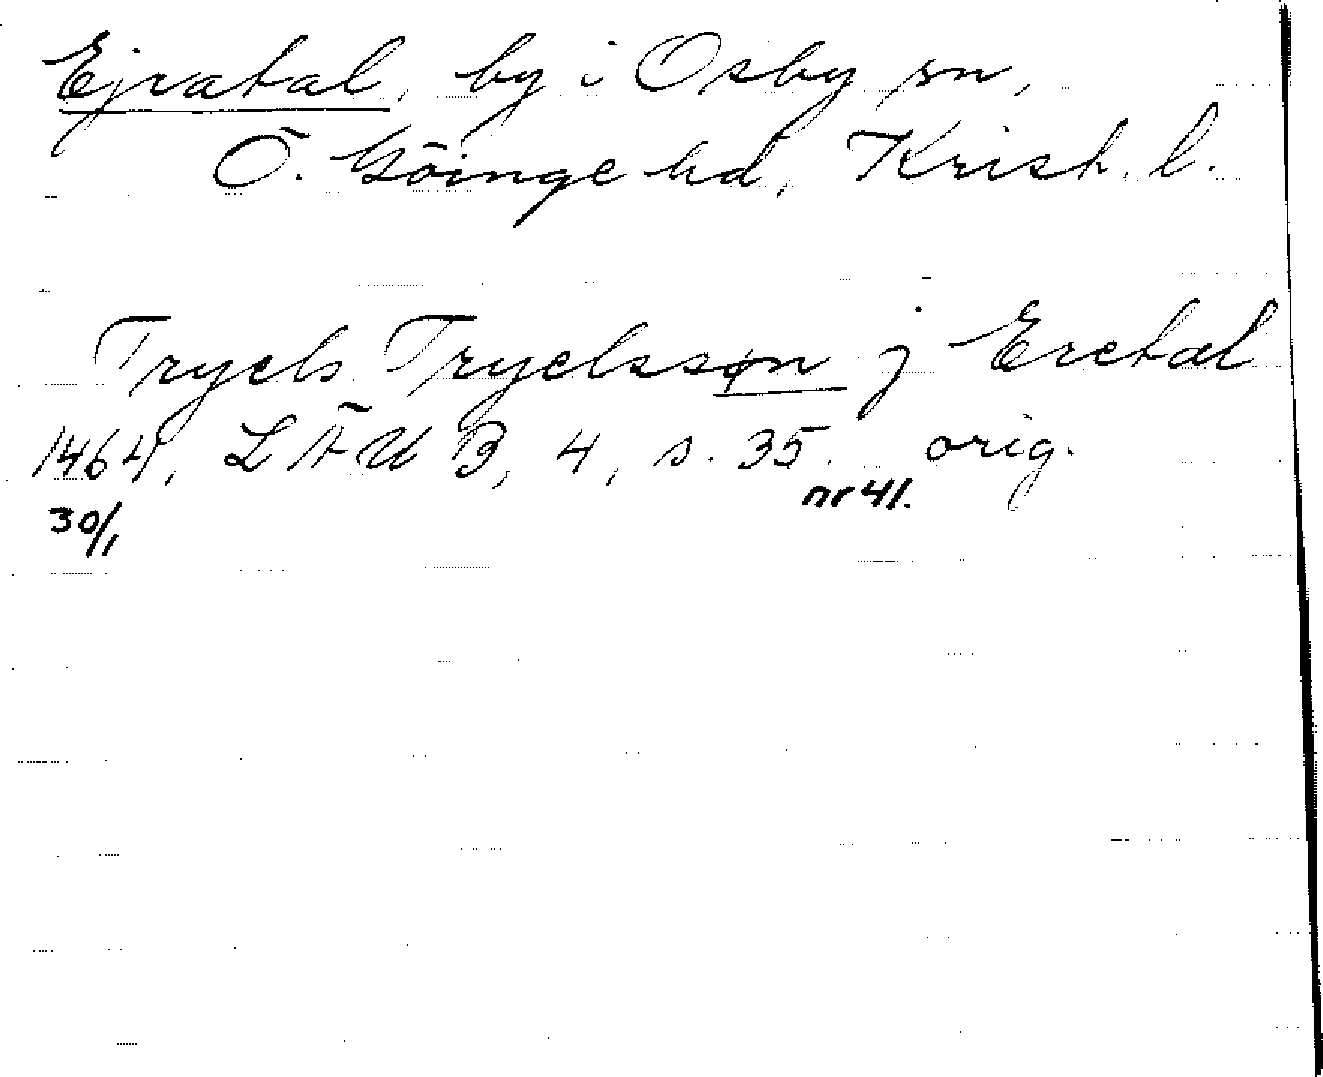 Ejratal, by i Osby sn,
Ö. Göinge hd, Krist. l.
Tryels Tryelssøn j Eretal
1464, LÄUB, 4, s. 35. orig.
30/1 nr 41.